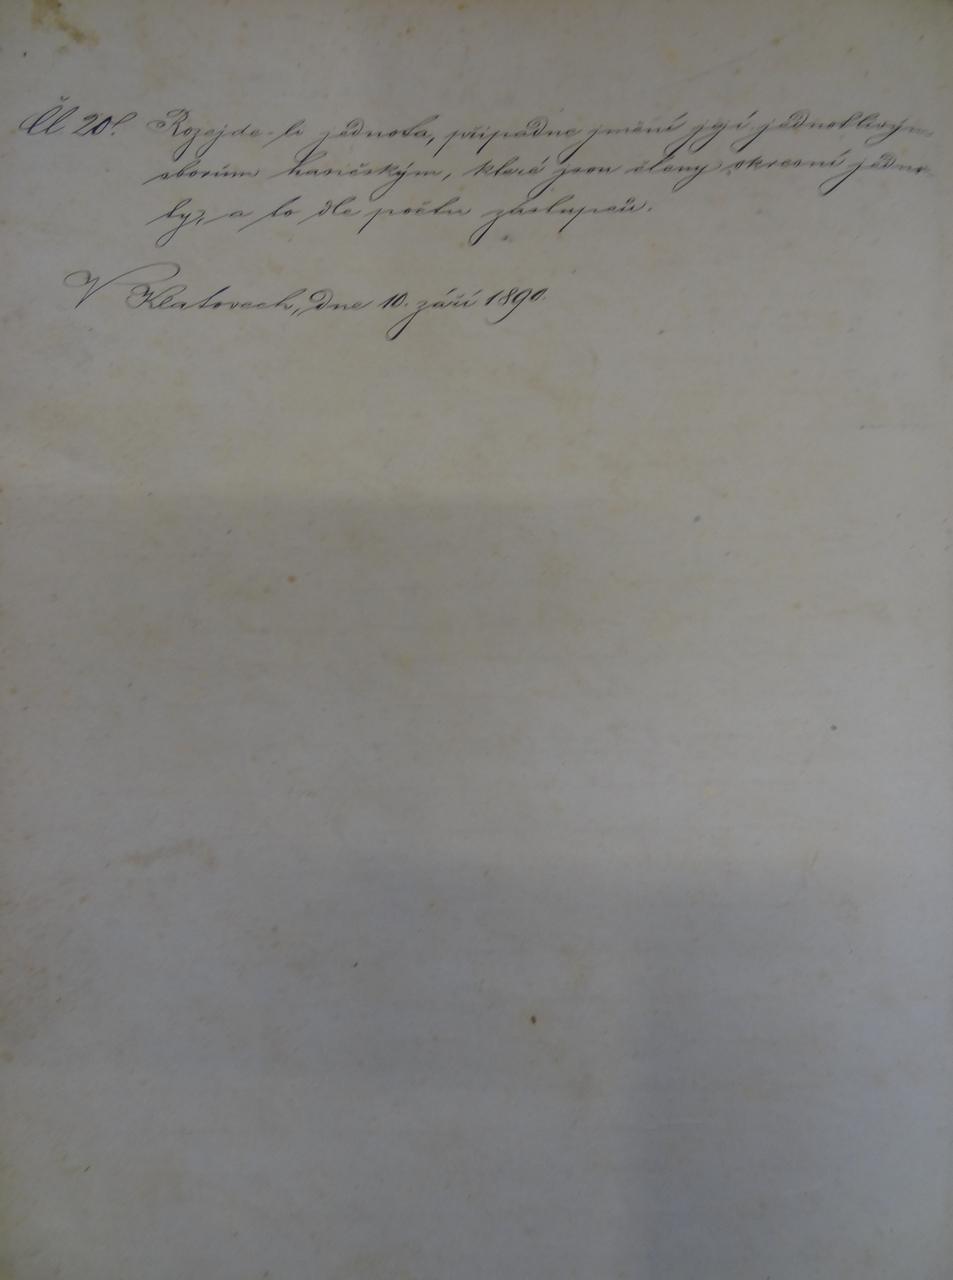 Čl 20. Rozejde-li jednota, připadne jmění její jednotlivým
sborům hasičským, které jsou členy okresní jedno-
ty, a to dle počtu zástupců.
V Klatovech, dne 10. září 1890.